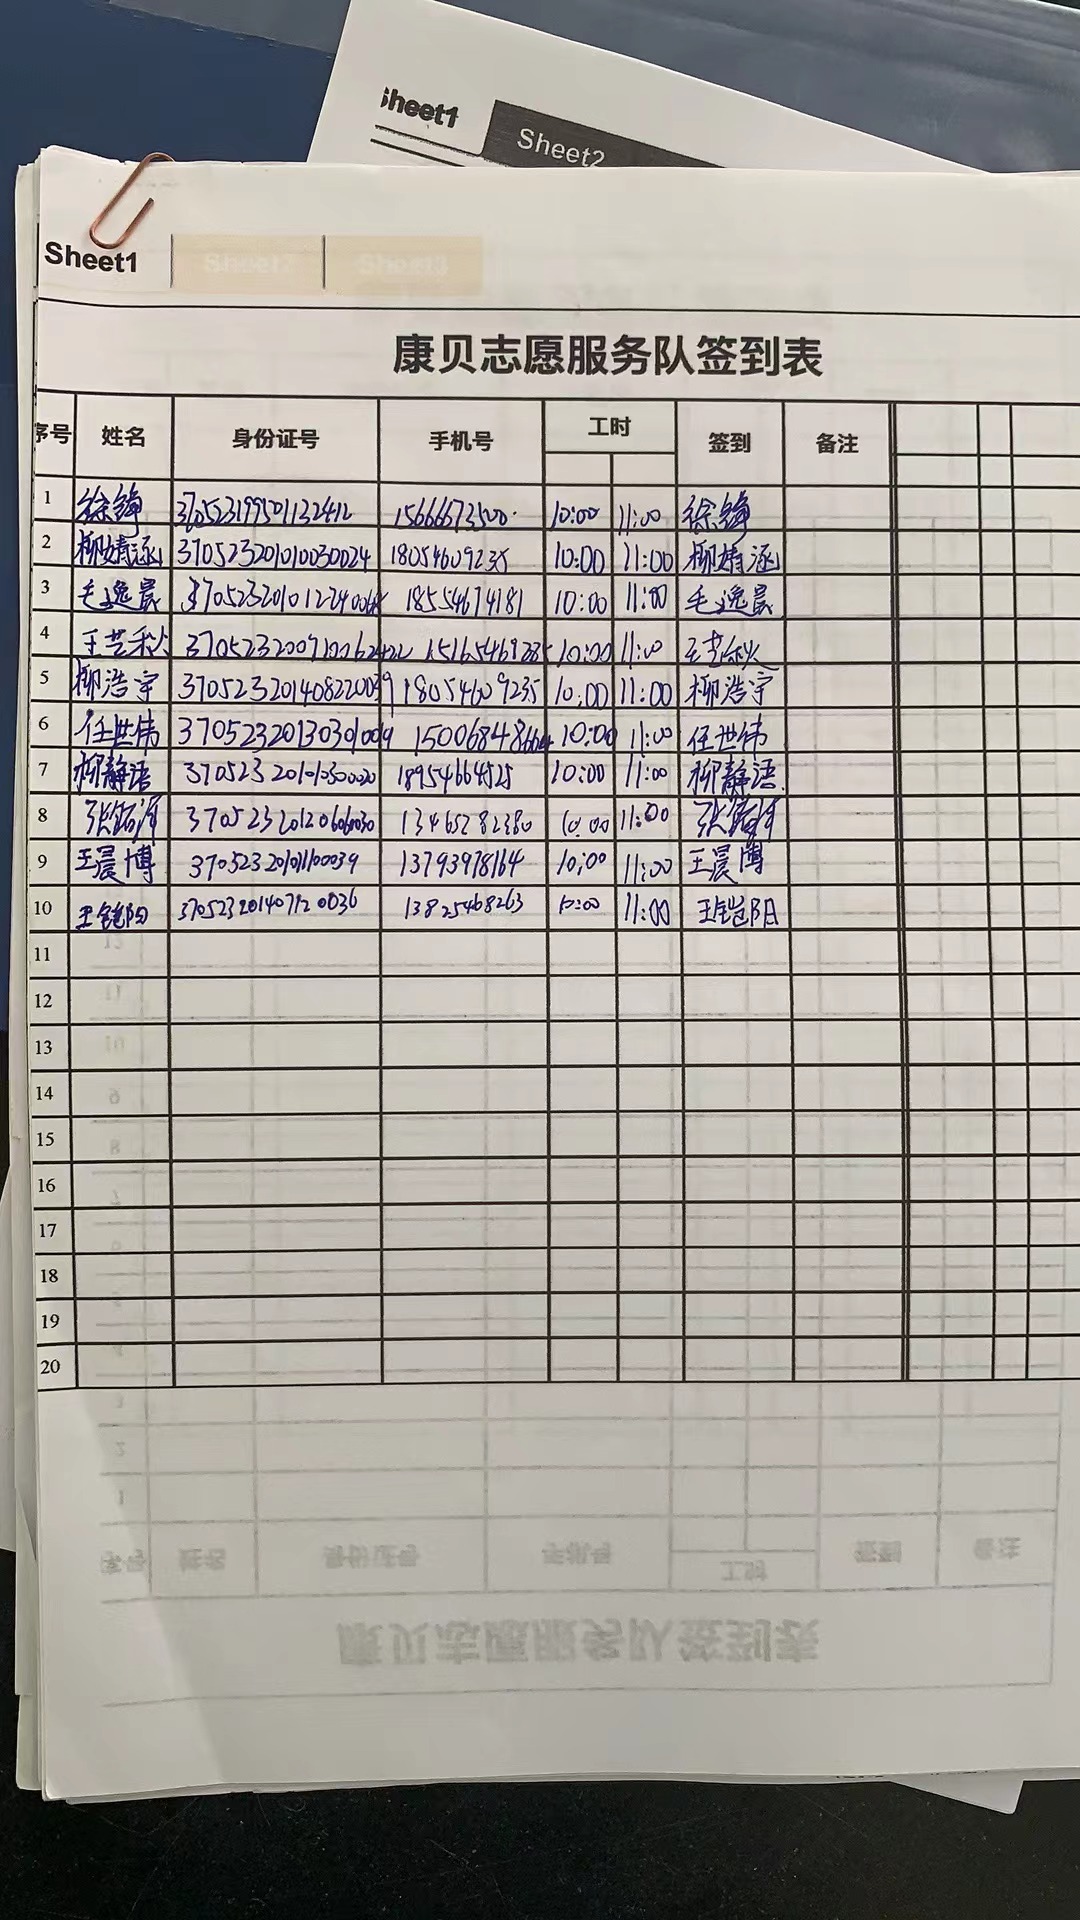 Sheet1
Sheet2
Sheet1
康贝志愿服务队签到表
序号 姓名 身份证号 手机号 工时 签到 备注
1 徐铮 370523199501132412 15666673500 10:00 11:00 徐铮
2 柳婧涵 370523201010030024 18054609235 10:00 11:00 柳婧涵
3 毛逸晨 18554674181 10:00 11:00 毛逸晨
4 王艺秋 10:00 11:00 王艺秋
5 柳浩宇 370523201408220039 18054609235 10:00 11:00 柳浩宇
6 任世伟 15006848664 10:00 11:00 任世伟
7 柳静语 18954664525 10:00 11:00 柳静语
8 13465282380 10:00 11:00
9 王晨博 13793978164 10:00 11:00 王晨博
10 王铠阳 370523201407120036 13825468263 10:00 11:00 王铠阳
11
12
13
14
15
16
17
18
19
20